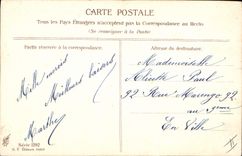 CARTE POSTALE
Tous les Pays Étrangers n'acceptent pas la Correspondance au Recto.
(Se renseigner à la Poste)
Partie réservée à la correspondance.
Adresse du destinataire.
Mille mercis
Meilleurs baisers
Marthe
Mademoiselle
Paul
92 Rue Marengo 92
au 3ème
En Ville
Série 1292